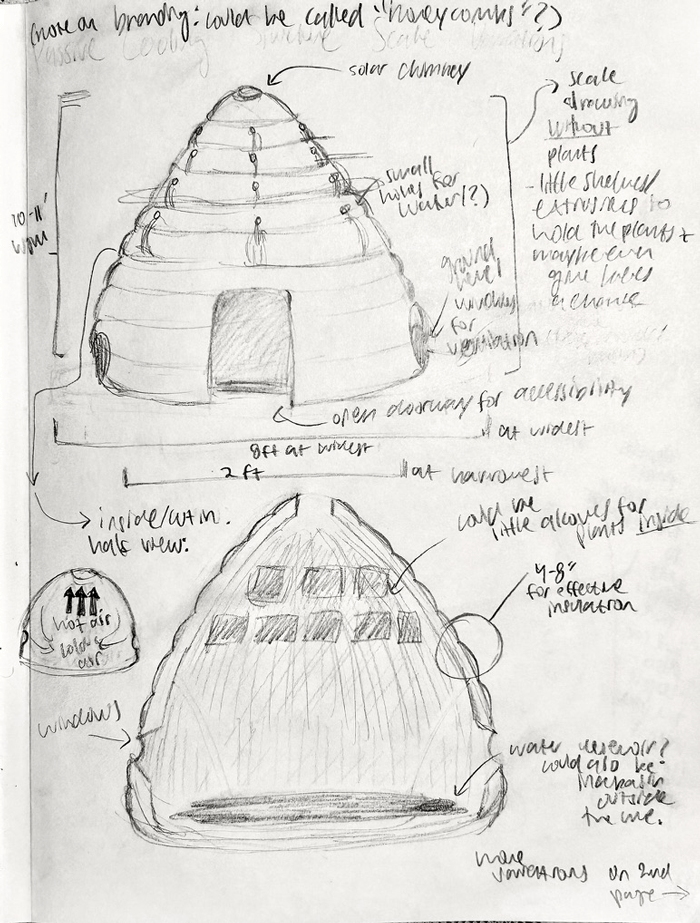 (more on branding: could be called "honeycombs"?)
Passive Cooling Structure Scale Variations
solar chimney
scale
drawing
without
plants
- little shelves/
extrusions to
hold the plants +
maybe even
give bees
a chance
10-11'
small
holes for
water(?)
ground
level
windows
for
ventilation
open doorway for accessibility
at widest
8ft at widest
2 ft
at narrowest
inside/
half view:
could be
little alcoves for
plants inside
4-8"
for effective
insulation
hot air
cold
air
windows
water reservoir?
could also be
outside
the
more
variations on 2nd
page